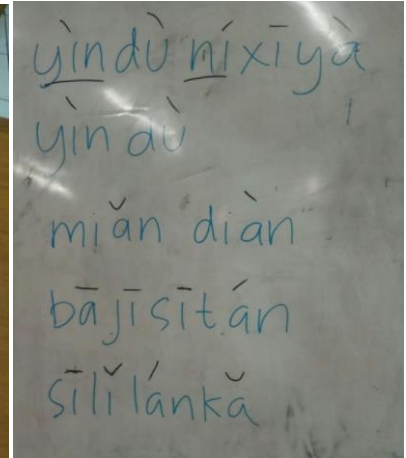 yìndù níxīyà
yìn dù
miǎn diàn
bājīsītán
sīlǐlánkǎ